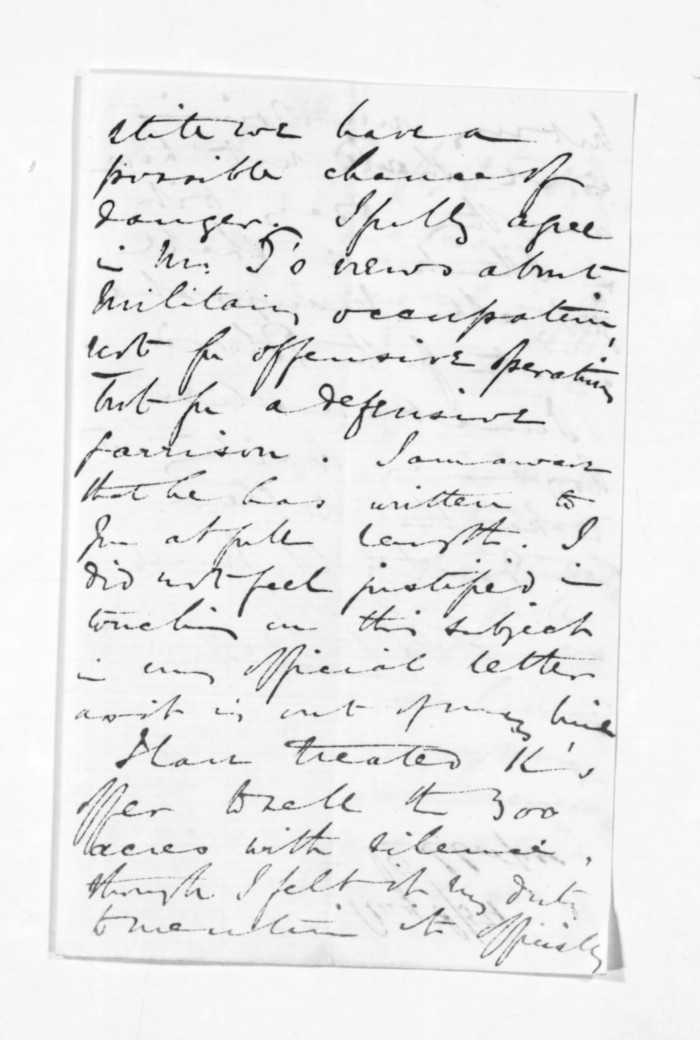 state we have a
possible chance of
danger. I fully agree
in Mr. T's views about
military occupation,
not for offensive operations
but for a defensive
garrison. I am aware
that he has written to
you at full length. I
did not feel justified in
touching on this subject
in my official letter
as it is out of my line
I have treated K's
offer to sell the 300
acres with silence,
though I felt it my duty
to mention it officially